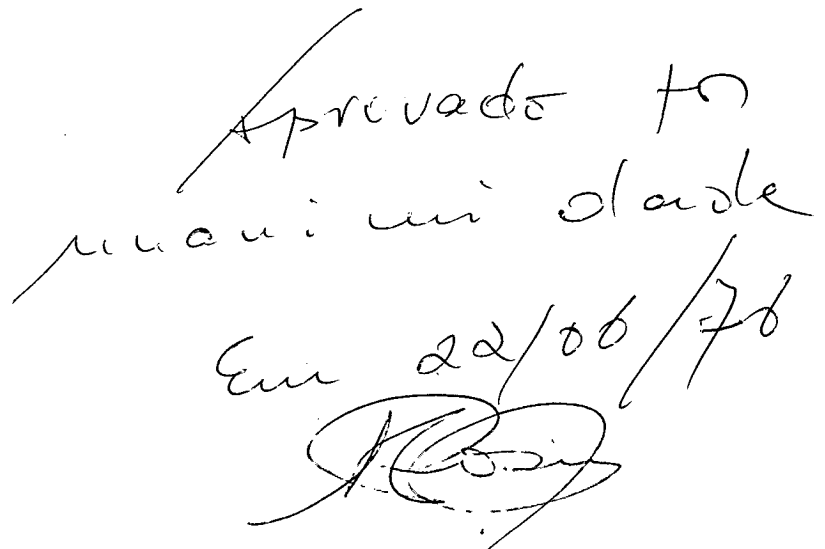 Aprovado por
unanimidade
Em 22/06/76